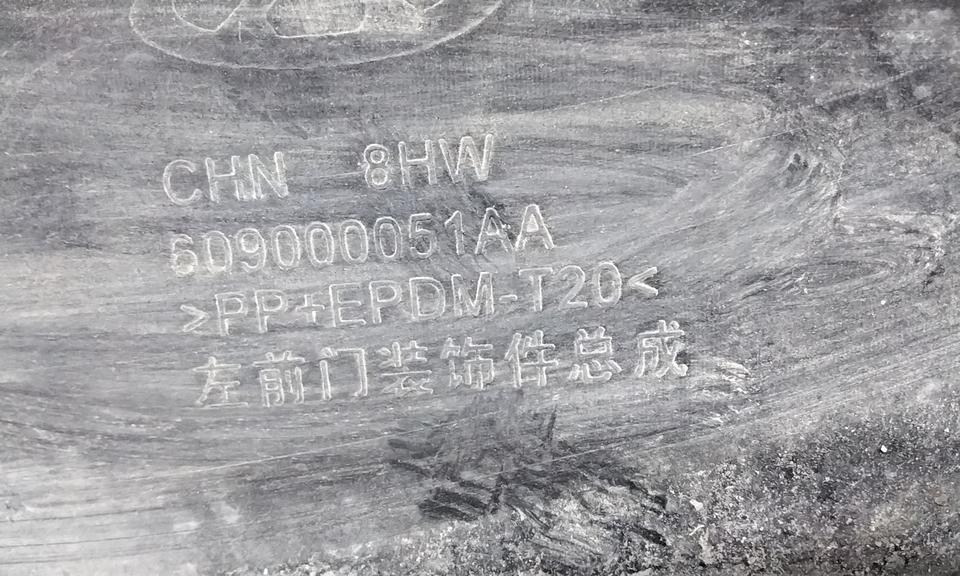 CHN 8HW
609000051AA
>PP+EPDM-T20<
左前门装饰件总成